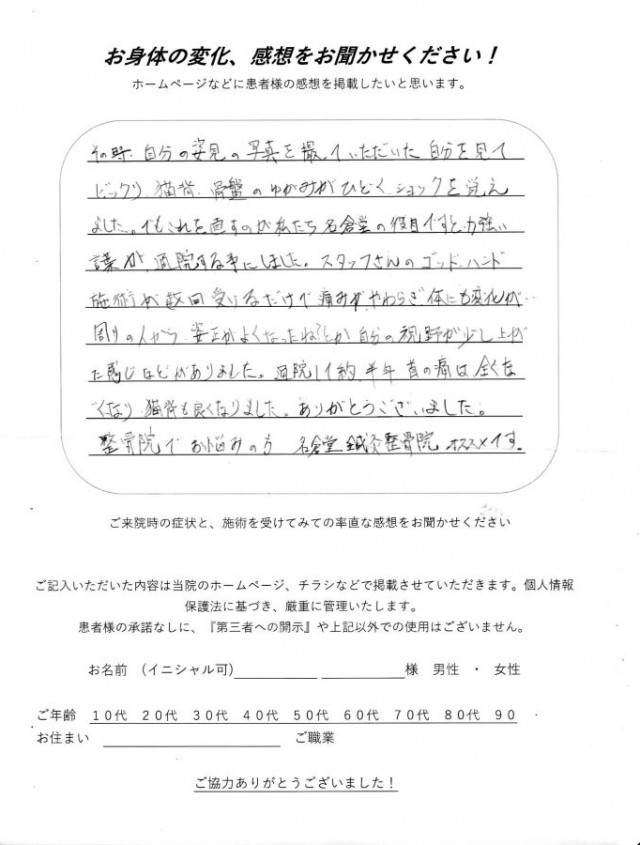 お身体の変化、感想をお聞かせください！
ホームページなどに患者様の感想を掲載したいと思います。
その時、自分の姿見の写真を撮っていただいた自分を見て
ビックリ 猫背、骨盤のゆがみがひどく、ショックを覚え
ました。でもこれを直すのが私たち名倉堂の役目ですと、力強い
言葉が、通院する事にしました。スタッフさんのゴッド・ハンド
施術が数回受けるだけで痛みがやわらぎ 体にも変化が、
周りの人から 姿正がよくなったね?とか 自分の視野が少し上がっ
た感じなどがありました。通院して約 半年 首の痛は全くな
くなり 猫背も良くなりました。ありがとうございました。
整骨院でお悩みの方 名倉堂鍼灸整骨院 オススメです。
ご来院時の症状と、施術を受けてみての率直な感想をお聞かせください
ご記入いただいた内容は当院のホームページ、チラシなどで掲載させていただきます。個人情報
保護法に基づき、厳重に管理いたします。
患者様の承諾なしに、『第三者への開示』や上記以外での使用はございません。
お名前 （イニシャル可） 様 男性 ・ 女性
ご年齢 10代 20代 30代 40代 50代 60代 70代 80代 90
お住まい ご職業
ご協力ありがとうございました！